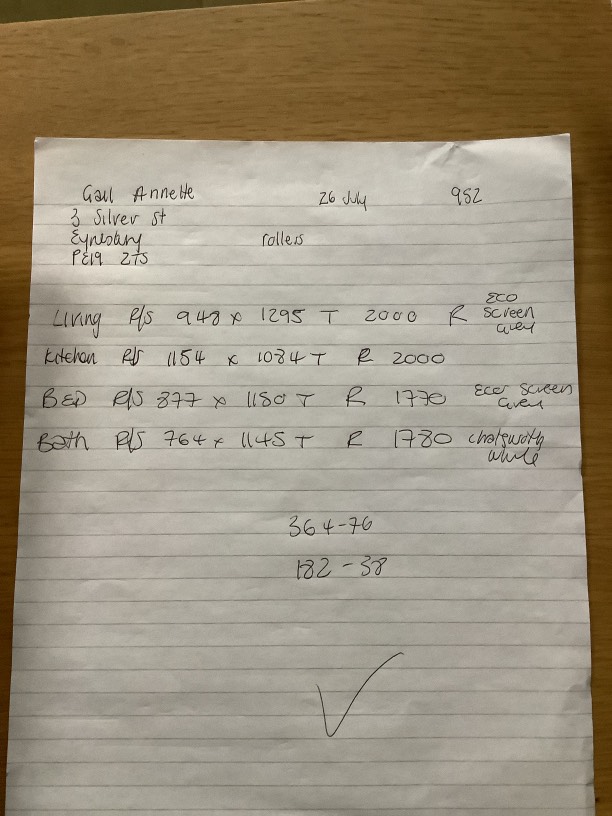 Gail Annette 26 July 952
3 Silver St
Eynesbury rollers
PE19 2TS
Living R/S 948 x 1295 T 2000 R Eco Screen
Kitchen R/S 1154 x 1084 T R 2000
BED R/S 877 x 1180 T R 1770 Eco Screen
Bath R/S 764 x 1145 T R 1780 chatsworth white
364-76
182-38